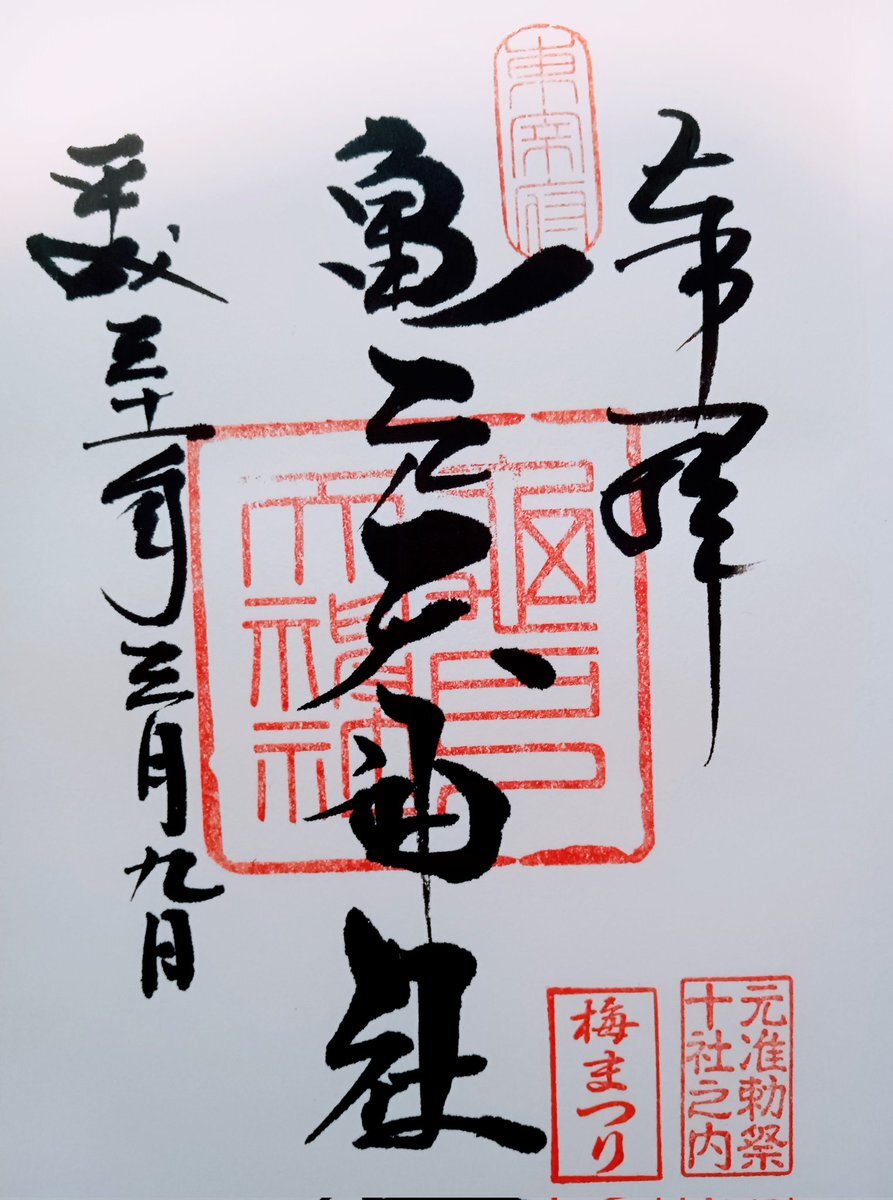 奉拝
東宰府
亀戸天神社
平成三十一年三月九日
元准勅祭
十社之内
梅まつり